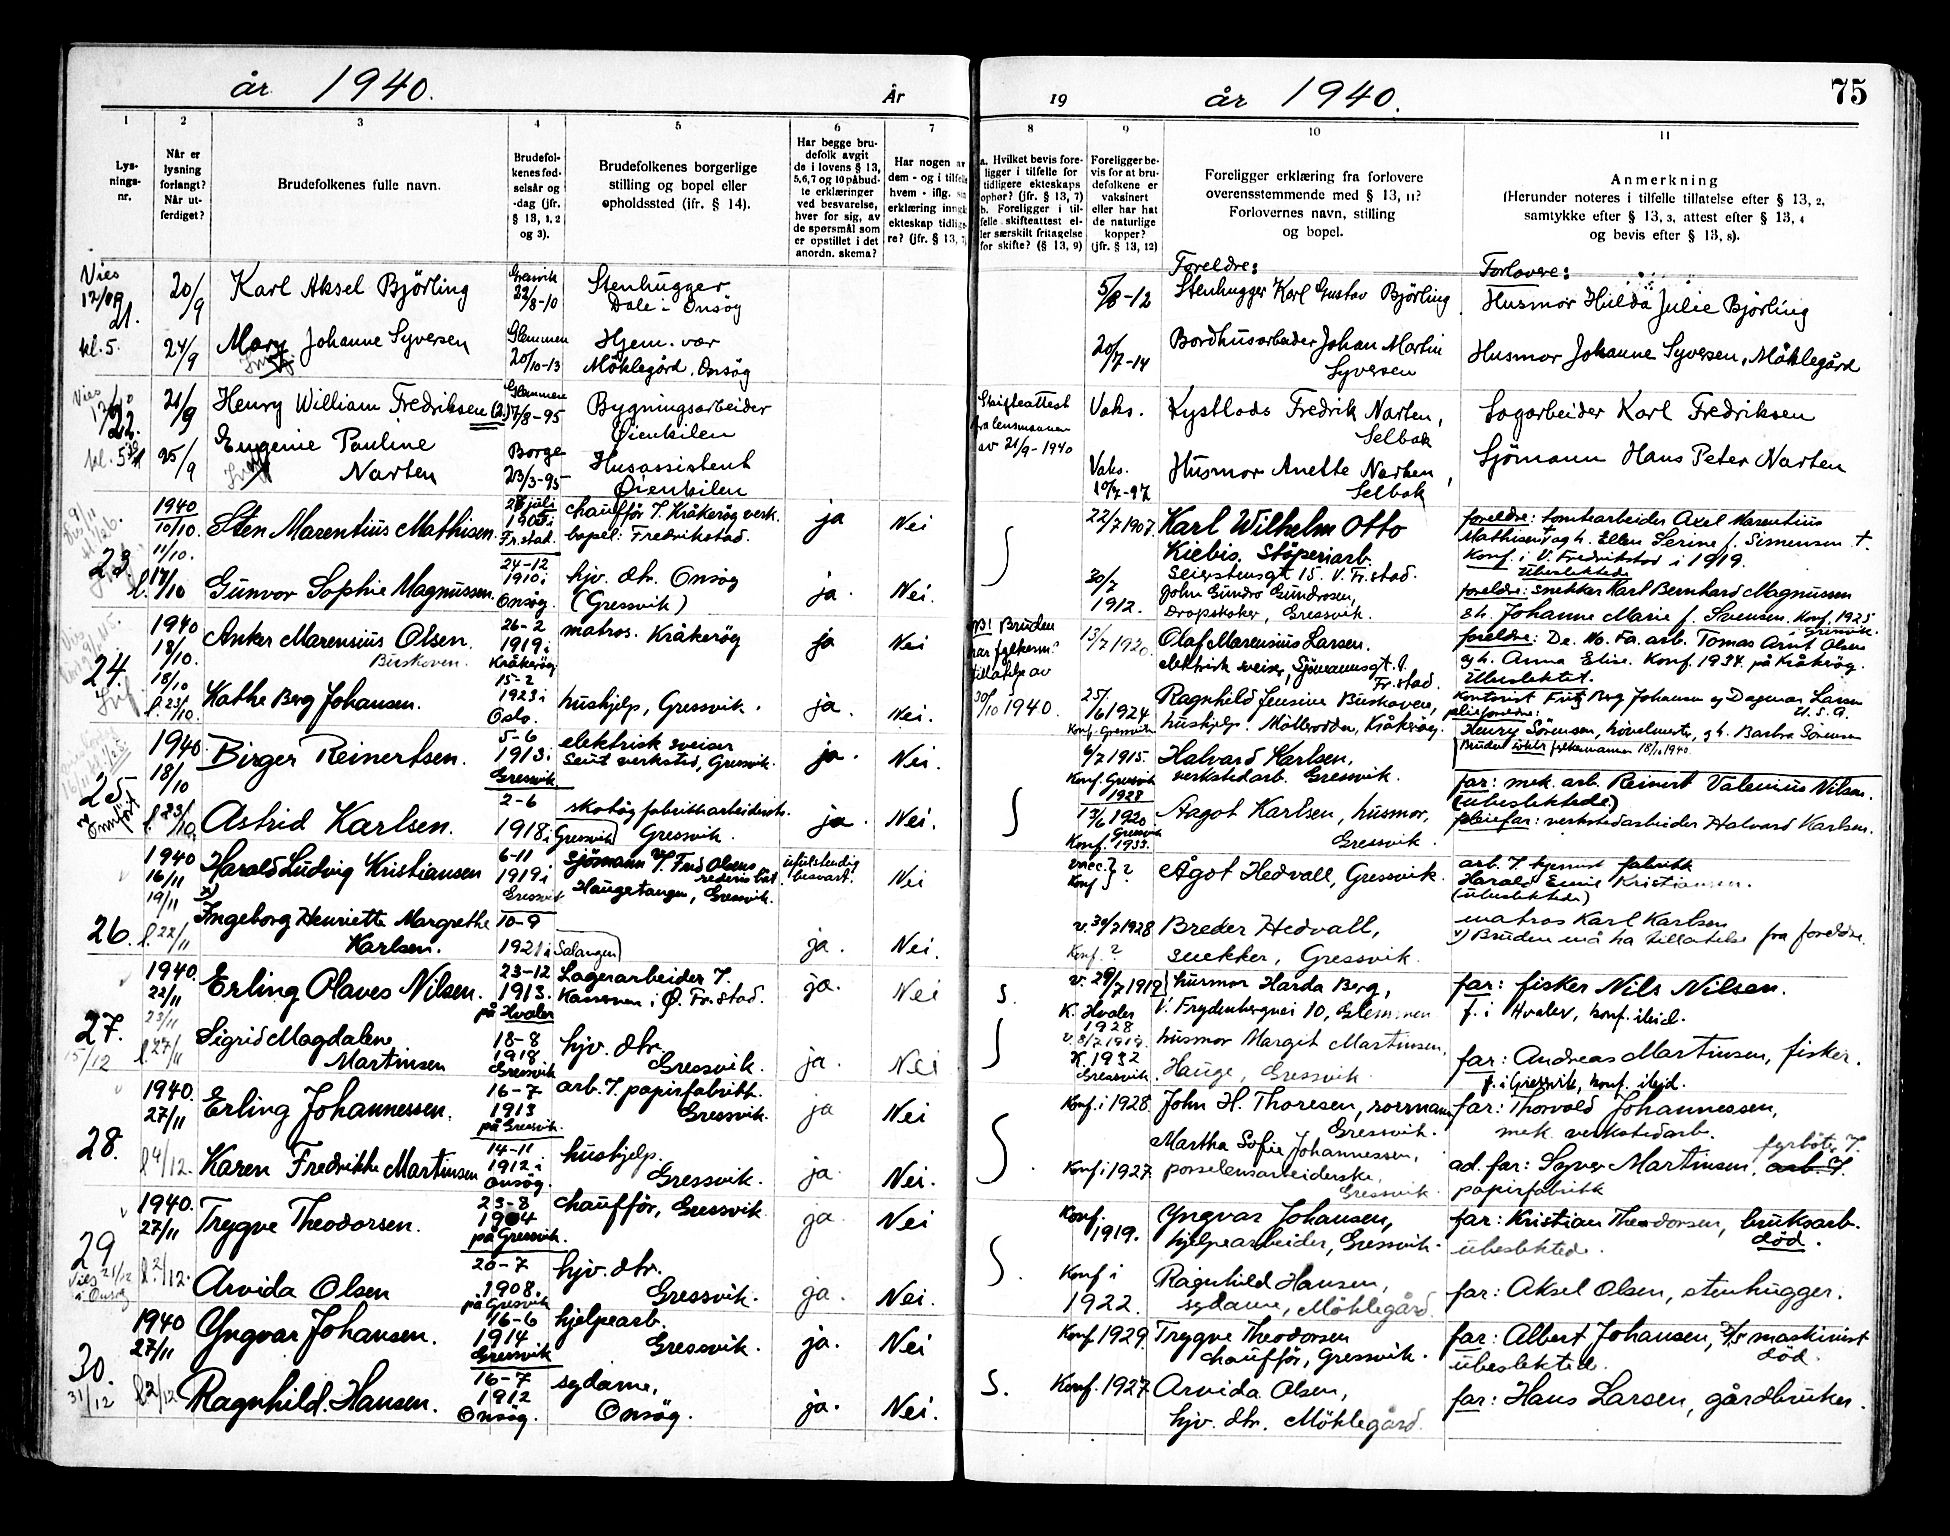 år 1940.
År
19
år 1940.
75
1
2
3
4
5
6
7
8
9
10
11
Lys-
nings-
nr.
Når er
lysning
forlangt?
Når ut-
ferdiget?
Brudefolkenes fulle navn.
Brudefol-
kenes fød-
selsår og
-dag (jfr.
§ 13, 1, 2
og 3).
Brudefolkenes borgerlige
stilling og bopel eller
opholdssted (ifr. § 14).
Har begge bru-
defolk avgit
de i lovens § 13,
5,6,7 og 10 påbud-
te erklæringer
ved besvarelse,
hver for sig, av
de spørsmål som
er opstillet i det
anordn. skema?
Har nogen av
dem - og i tilfelle
hvem - iflg. sin
erklæring inngå
ekteskap tidlig
re? (jfr. § 13,
a. Hvilket bevis fore-
ligger i tilfelle for
tidligere ekteskaps
ophør? (jfr. § 13, 7)
b. Foreligger i til-
felle skifteattest el-
ler særskilt fritagelse
for skifte? (§ 13, 9)
Foreligger be-
vis for at bru-
defolkene er
vaksinert
eller har hat
de naturlige
kopper?
(jfr. § 13, 12)
Foreligger erklæring fra forlovere
overensstemmende med § 13, 11?
Forlovernes navn, stilling
og bopel.
Anmerkning
(Herunder noteres i tilfelle tillatelse efter § 13, 2,
samtykke efter § 13, 3, attest efter § 13, 4
og bevis efter § 13, 8).
Foreldre:
Forlovere:
Vies
21.
kl. 5.
20/9
Karl Aksel Björling
Gressvik
22/8-10
Stenhugger
Dale i Onsöy
5/8-12
Stenhugger Karl Gustav Björling
Husmor Hulda Julie Björling
24/9
Mary Johanne Syversen
Glemmen
20/10-13
Hjem. vær
Möklegård, Onsöy
20/7-14
Bordhusarbeider Johan Martin
Syversen
Husmor Johanne Syversen, Möklegård
Vies
22.
21/9
Henry William Fredriksen (2.)
Glemmen
17/8-95
Bygningsarbeider
Öienkilen
Skifteattest
fra lensmannen
av 21/9-1940
Vaks.
Kystlods Fredrik Narten,
Selbak
Sagarbeider Karl Fredriksen
25/9
Eugenie Pauline
Narten
Borge
23/3-95
Husassistent
Öienkilen
Vaks.
10/7-97
Husmor Anette Narten,
Selbak
Sjömann Hans Peter Narten
23.
1940
10/10.
11/10.
Sten Marentius Mathisen.
1905 i
Fr.stad.
chaufför v. Kråkeröy verk.
bopel: Fredrikstad.
ja
Nei
22/7 1907.
Karl Wilhelm Otto
Kiebis, Stöperiarb.
Seierstensgt 15. V. Fr.stad.
foreldre: tomtearbeider Axel Marentius
Mathisen og h. Ellen Serine f. Simensen †.
Konf. i V. Fredrikstad i 1919.
Ubeslektede
Gunvor Sophie Magnussen.
24-12
1910 i
Onsöy.
hjv. dtr. Onsöy
(Gressvik)
ja.
Nei.
30/7
1912.
John Gundro Gundrosen,
Gressvik.
foreldre: snekker Karl Bernhard Magnussen
& h. Johanne Marie f. Svensen. Konf. 1925
Gressvik.
24.
1940
18/10.
Anker Marensius Olsen.
Buskoven.
26-2
1919 i
Kråkeröy
matros. Kråkeröy
ja
Nei
NB! Bruden
har fylkesm.
tillatelse av
30/10 1940.
13/7 1920.
Olaf Marensius Larsen.
elektrisk sveiser, Sjömannsgt.
Fr.stad.
foreldre: De. No. Fa. arb. Tomas Arnt Olsen
og h. Anna Elise. Konf. 1934. på Kråkeröy.
Ubeslektet.
18/10
l. 23/10.
Kathe Berg Johansen.
15-2
1923 i
Oslo.
hushjelp, Gressvik.
ja.
Nei.
25/6 1924
Konf. Gressvik
Ragnhild Jensine Buskoven,
hushjelp. Kråkeröy.
Kontorist Fritz Berg Johansen og Dagmar Larsen
U.S.A.
pleieforeldre:
Henry Sörensen, hövelmester, og h. Barbra Sörensen
25.
Omfört
1940.
18/10
Birger Reinertsen.
5-6
1913 i
Gressvik
elektrisk sveiser
Gressvik.
ja.
Nei.
6/7 1915.
Konf. Gressvik
1928
Halvard Karlsen,
verkstedarb. Gressvik.
far: mek. arb. Reinert Valenius Nilsen.
(ubeslektede)
l. 23/10.
Astrid Karlsen.
2-6
1918 i Gressvik
skotöy fabrikkarbeiderske
Gressvik.
ja.
Nei.
13/6 1920
Konf. Gressvik
1933.
Aagot Karlsen, husmor,
Gressvik.
pleiefar: verkstedarbeider Halvard Karlsen.
26.
1940
16/11
19/11
Harald Ludvig Kristiansen
6-11
1919 i
Gressvik
sjömann v. Fred Olsens
rederis båt.
Haugetangen, Gressvik.
ufulstendig
besvart.
Nei
vacc.
Konf. } ?
Ågot Hedvall, Gressvik.
arb. v. fabrikk
Harald Emil Kristiansen.
(ubeslektede)
l. 22/11
Ingeborg Henriette Margrethe
Karlsen.
10-9
1921 i Salangen
ja.
Nei.
v. 30/7 1928
Konf. ?
Breder Hedvall,
snekker, Gressvik.
matros Karl Karlsen
x) Bruden må ha tillatelse fra foreldre.
27.
15/12
1940.
22/11
23/11
Erling Olaves Nilsen.
23-12
1913.
på Hvaler
Lagerarbeider v.
Kanonen i Ö. Fr.stad.
ja.
Nei
K. Hvaler
1928
husmor Harda Berg,
V. Frydenbergvei 10, Glemmen
far: fisker Nils Nilsen.
f. i Hvaler, konf. ibid.
l. 27/11
Sigrid Magdalene
Martinsen
18-8
1918
Gressvik
hjv. dtr.
Gressvik.
ja.
Nei
K. 1932
Gressvik.
husmor Margit Martinsen,
Hauge, Gressvik.
far: Andreas Martinsen, fisker.
f. i Gressvik, konf. ibid.
28.
1940.
27/11
Erling Johannessen.
16-7
1913
på Gressvik.
arb. v. papirfabrikk
Gressvik.
ja
Nei
Konf. i 1928.
John H. Thoresen, rormann
Gressvik.
far: Thorvald Johannessen,
mek. verkstedarb.
l. 4/12.
Karen Fredrikke Martinsen
14-11
1912 i
Onsöy.
hushjelp.
Gressvik.
ja
Nei.
Konf i 1927.
Martha Sofie Johannessen,
porselensarbeiderske,
Gressvik
ad. far: Syver Martinsen, arb. v. fyrböter v.
papirfabrikk
29
Vies 21/12
i Onsöy
1940.
27/11
Trygve Theodorsen.
23-8
1904
på Gressvik.
chaufför, Gressvik.
ja.
Nei
Konf.
1919.
Yngvar Johansen,
hjelpearbeider, Gressvik.
far: Kristian Theodorsen, bruksarb.
död.
ubeslektede.
l. 2/12.
Arvida Olsen
20-7
1908.
på Gressvik
hjv. dtr.
Gressvik.
ja.
Nei.
Konf i
1922.
Ragnhild Hansen,
sydame, Möklegård
far: Aksel Olsen, stenhugger.
30.
31/12
1940
27/11
Yngvar Johansen.
16-6
1914
Gressvik
hjelpearb.
Gressvik.
ja.
Nei
Konf 1929.
Trygve Theodorsen
chaufför, Gressvik.
far: Albert Johansen, maskinist
död.
ubeslekted.
l. 2/12
Ragnhild Hansen.
16-7
1912
Onsöy.
sydame,
Onsöy.
ja.
Nei.
Konf. 1927.
Arvida Olsen,
hjv. dtr. Möklegård.
far: Hans Larsen, gårdbruker.